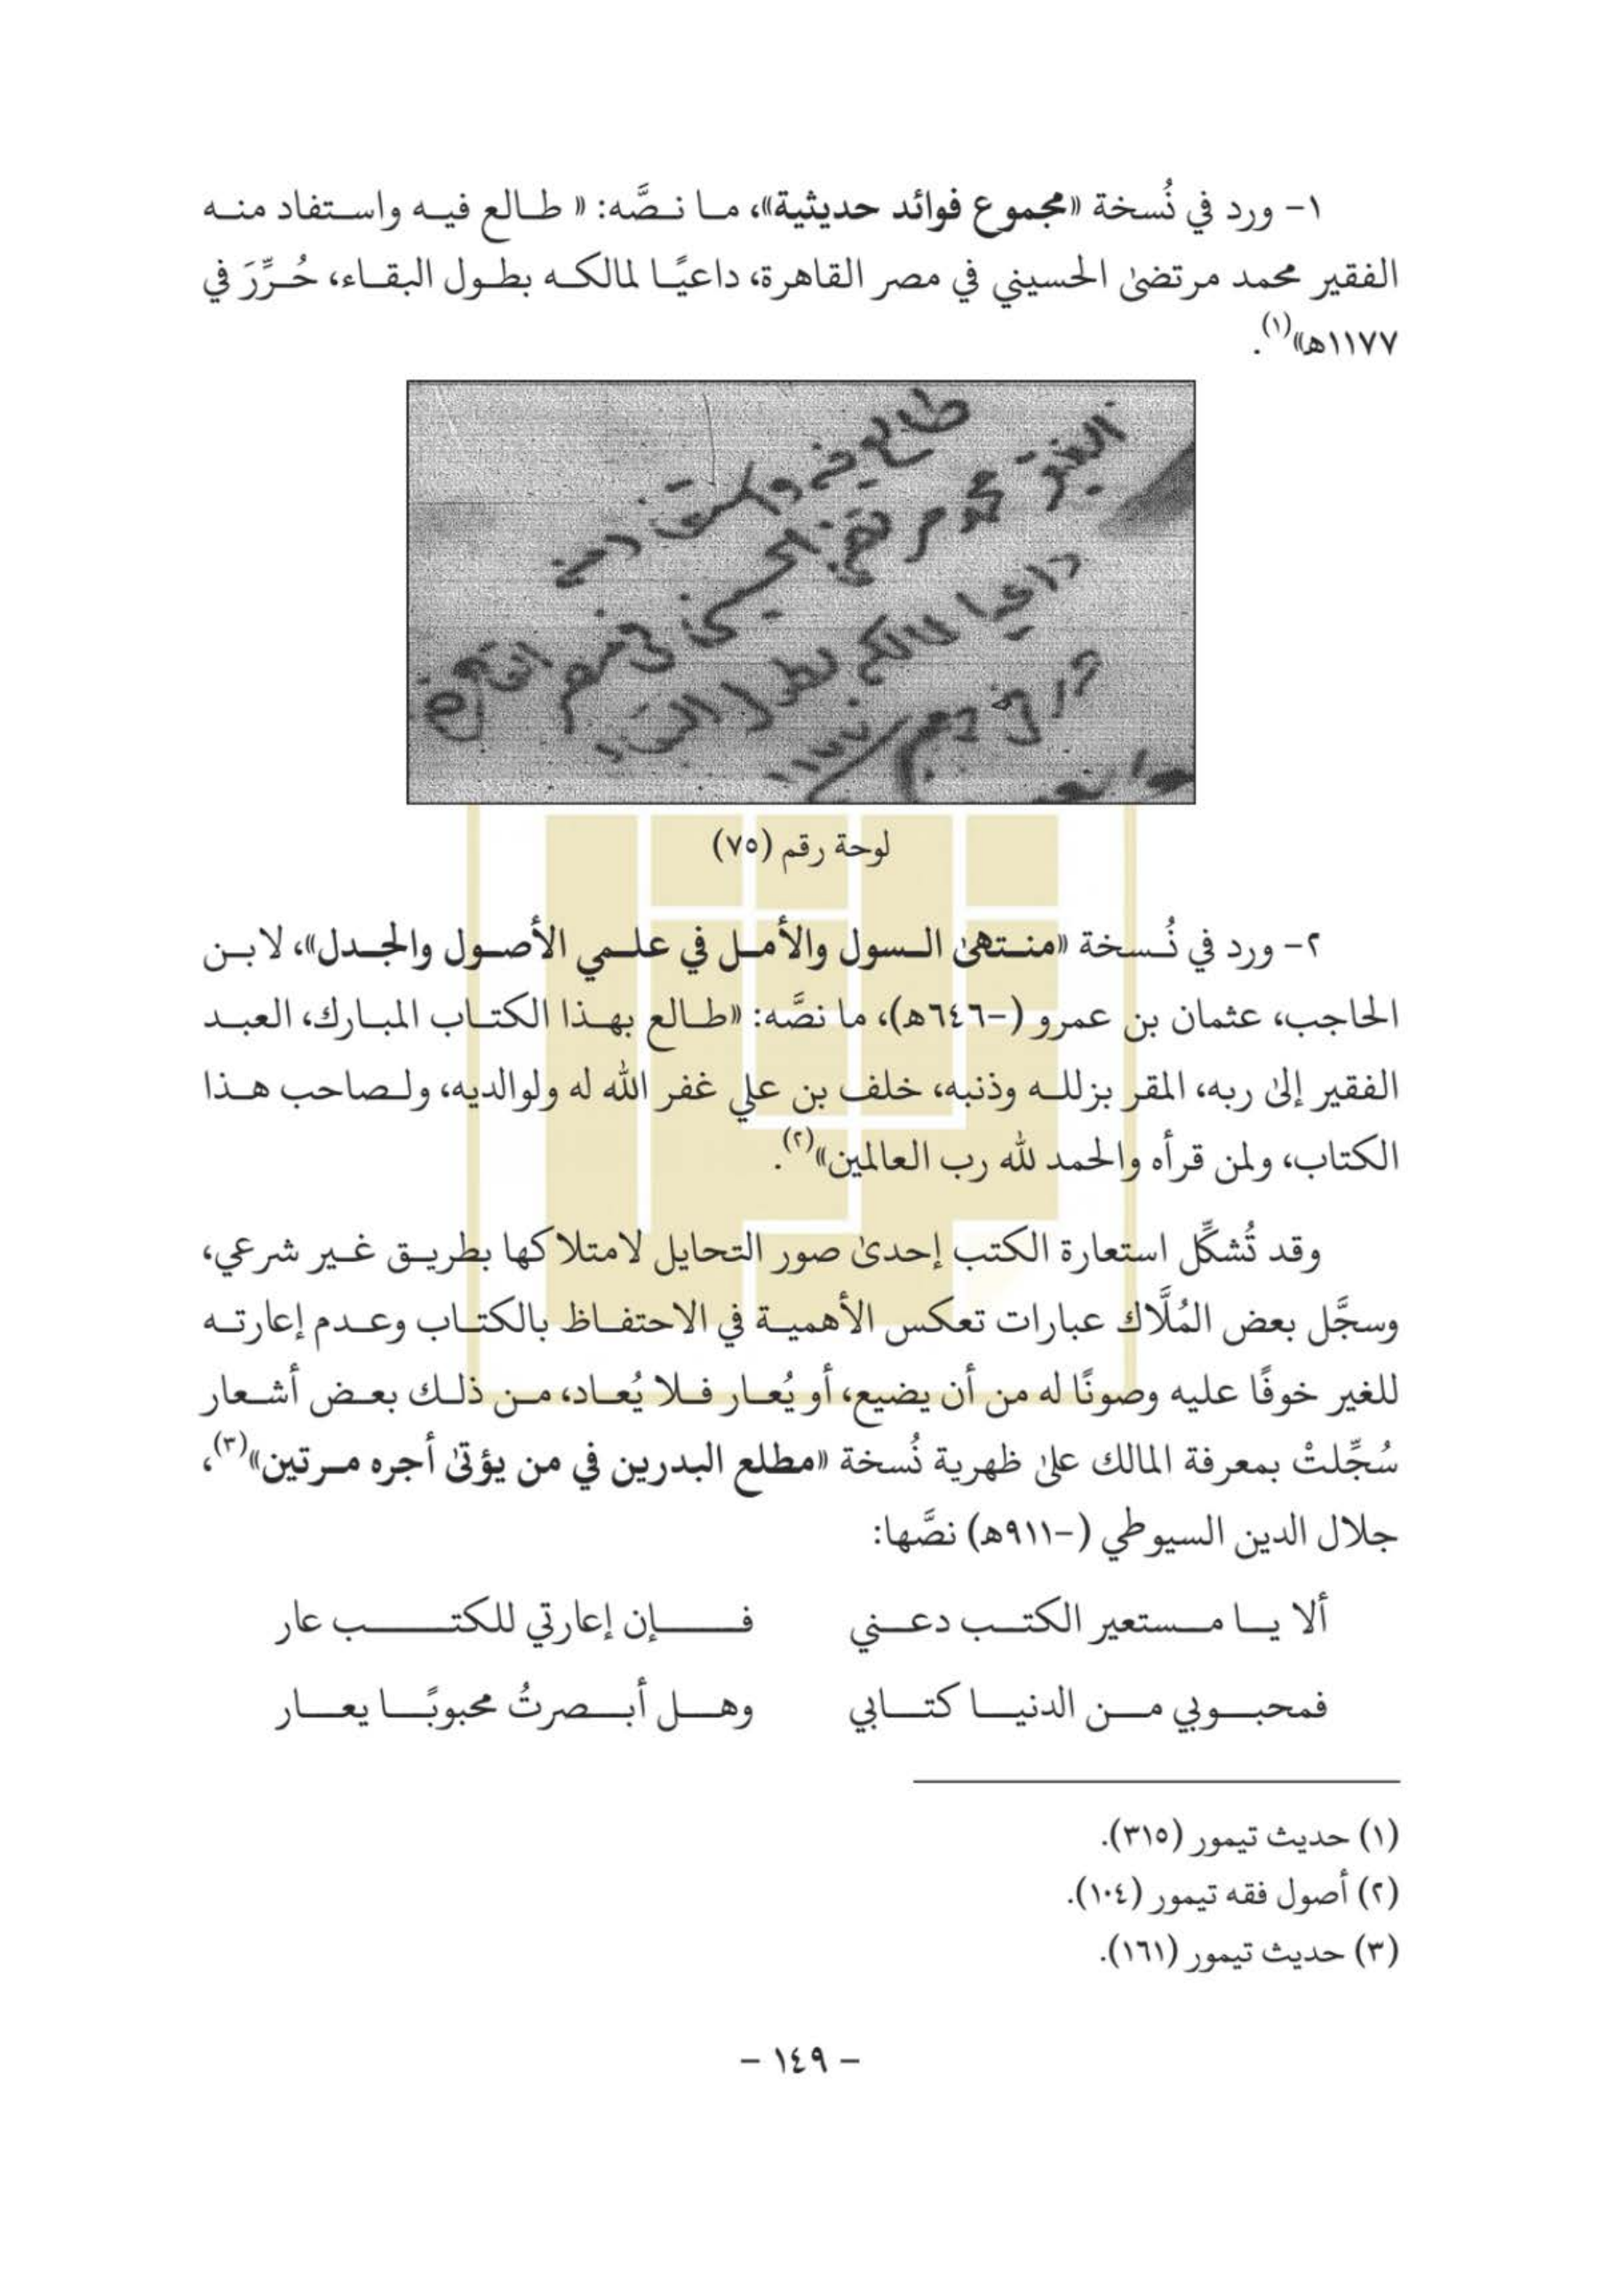 ١- ورد في نُسخة «مجموع فوائد حديثية»، مـا نـصَّه: « طـالع فيـه واسـتفاد منـه
الفقير محمد مرتضىٰ الحسيني في مصر القاهرة، داعيًـا لمالكـه بطـول البقـاء، حُـرِّرَ في
١١٧٧هـ»(١).
طالع فيه واستفاد منه
الفقير محمد مرتضى الحسيني في مصر القاهرة
داعيا لمالكه بطول البقاء
حرر في
١١٧٧
لوحة رقم (٧٥)
٢- ورد في نُـسخة «منـتهىٰ الـسول والأمـل في علـمي الأصـول والجـدل»، لابـن
الحاجب، عثمان بن عمرو (-٦٤٦هـ)، ما نصَّه: «طـالع بهـذا الكتـاب المبـارك، العبـد
الفقير إلىٰ ربه، المقر بزللـه وذنبه، خلف بن علي غفر الله له ولوالديه، ولـصاحب هـذا
الكتاب، ولمن قرأه والحمد لله رب العالمين»(٢).
وقد تُشكِّل استعارة الكتب إحدىٰ صور التحايل لامتلاكها بطريـق غـير شرعي،
وسجَّل بعض المُلَّاك عبارات تعكس الأهميـة في الاحتفـاظ بالكتـاب وعـدم إعارتـه
للغير خوفًا عليه وصونًا له من أن يضيع، أو يُعـار فـلا يُعـاد، مـن ذلـك بعـض أشـعار
سُجِّلتْ بمعرفة المالك علىٰ ظهرية نُسخة «مطلع البدرين في من يؤتىٰ أجره مـرتين»(٣)،
جلال الدين السيوطي (-٩١١هـ) نصَّها:
ألا يـا مـستعير الكتـب دعـني فـإن إعارتي للكتـب عار
فمحبـوبي مـن الدنيـا كتـابي وهـل أبـصرتُ محبوبًـا يعـار
(١) حديث تيمور (٣١٥).
(٢) أصول فقه تيمور (١٠٤).
(٣) حديث تيمور (١٦١).
- ١٤٩ -